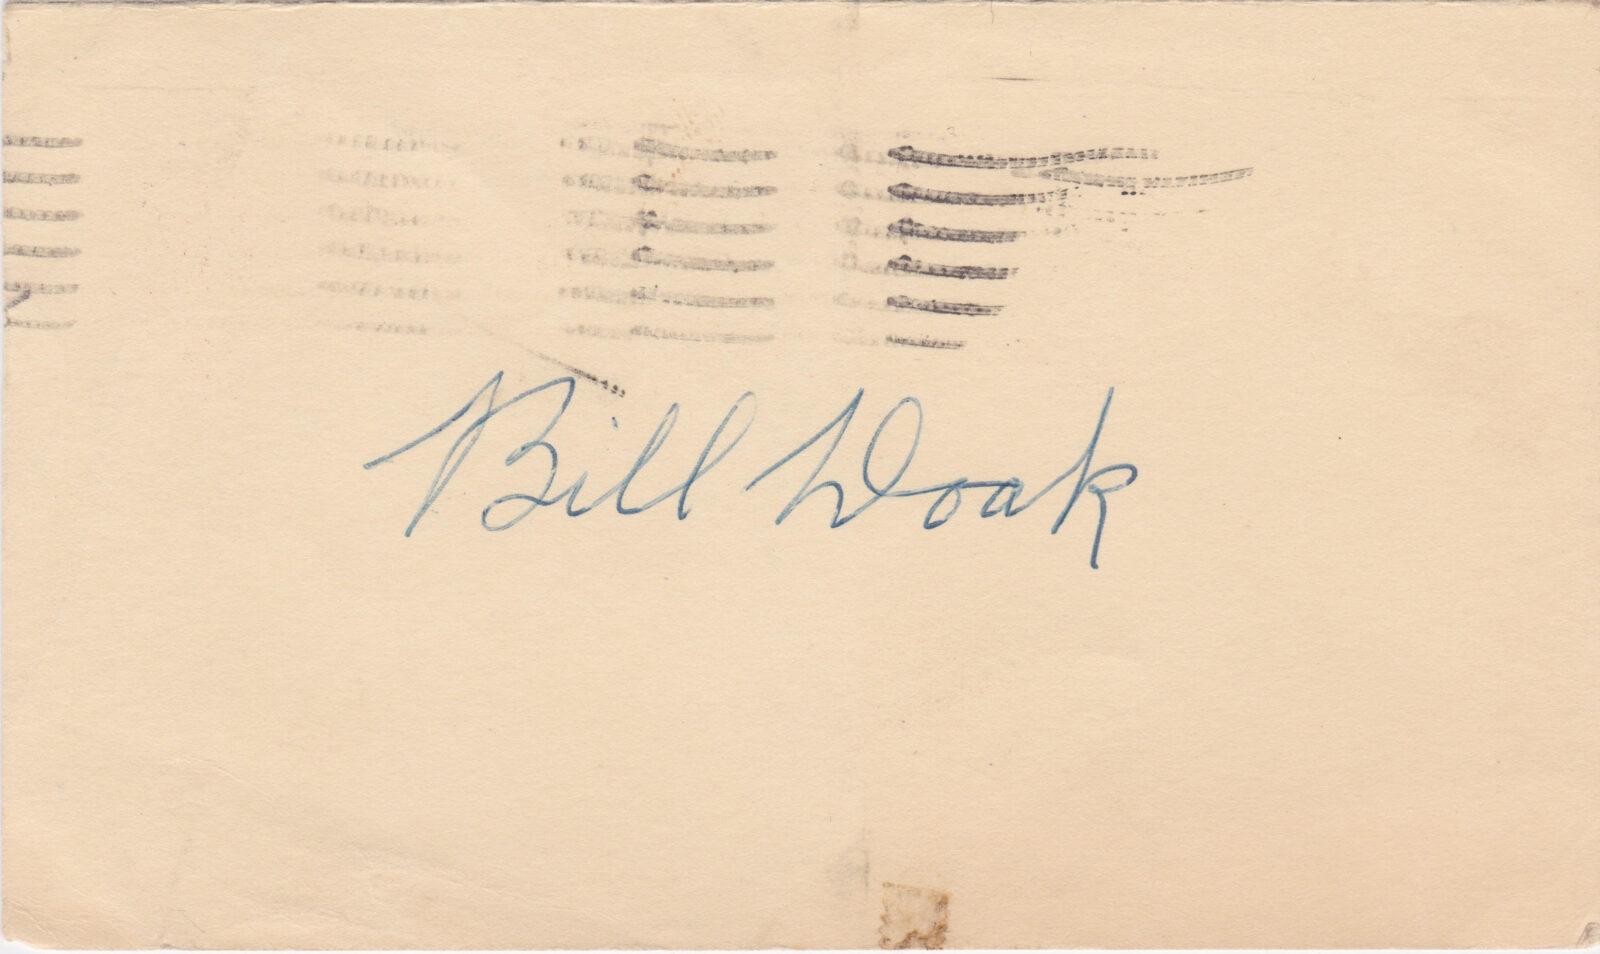 Bill Doak